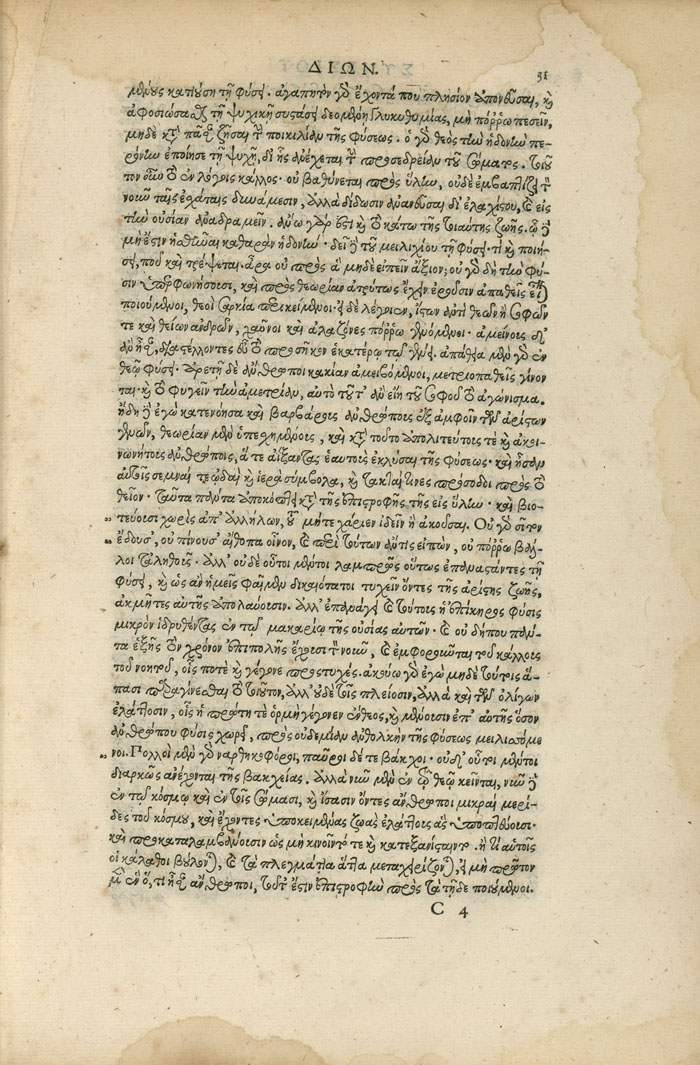 ΔΙΩΝ. 31
μένους κατιούση τῇ φύσει. ἀγαπητὸν γὰρ ἔχοντά που πλησίον ἀπονεῦσαι, καὶ
ἀφοσιώσασθαι τῇ ψυχικῇ συστάσει δεομένῃ γλυκυθυμίας, μὴ πόῤῥω πεσεῖν,
μηδὲ κατὰ πᾶσαν ζῆσαι τὴν ποικιλίαν τῆς φύσεως. ὁ γὰρ θεὸς τὴν ἡδονὴν πε-
ρόνην ἐποίησε τῇ ψυχῇ, δι' ἧς ἀνέχεται τὴν προσεδρείαν τοῦ σώματος. τοιοῦ-
τον οὖν τὸ ἐν λόγοις κάλλος· οὐ βαθύνεται πρὸς ὕλην, οὐδὲ ἐμβαπτίζει τὸν
νοῦν ταῖς ἐσχάταις δυνάμεσιν, ἀλλὰ δίδωσιν ἀνανεῦσαι δι' ἐλαχίστου, καὶ εἰς
τὴν οὐσίαν ἀναδραμεῖν. ἄνω γάρ ἐστι καὶ τὸ κάτω τῆς τοιαύτης ζωῆς. ᾧ δὲ
μὴ ἔστιν ἡσθῆναι καθαρὰν ἡδονήν· δεῖ δὲ τοῦ μειλιχίου τῇ φύσει· τί καὶ ποιή-
σει, ποῖ καὶ τρέψεται; ἆρα οὐ πρὸς ἃ μηδὲ εἰπεῖν ἄξιον; οὐ γὰρ δὴ τὴν φύ-
σιν ὑπερφωνήσουσι, καὶ πρὸς θεωρίαν ἀτρύτως ἔχειν ἐροῦσιν ἀπαθεῖς εἶναι
ποιούμενοι, θεοὶ σαρκία περικείμενοι· εἰ δὲ λέγοιεν, ἴστων ἀντὶ θεῶν ἢ σοφῶν
τε καὶ θείων ἀνδρῶν, χαῦνοι καὶ ἀλαζόνες πόῤῥω γενόμενοι. ἀμείνους δ'
ἂν ἦσαν, διαστέλλοντες εὖ τὸ προσῆκον ἑκατέρῳ τῷ γένει. ἀπάθεια μὲν γὰρ ἐν
θεῷ φύσει· ἀρετῇ δὲ ἄνθρωποι κακίαν ἀμειβόμενοι, μετριοπαθεῖς γίνον-
ται· καὶ τὸ φυγεῖν τὴν ἀμετρίαν, αὐτὸ τοῦτ' ἂν εἴη τοῦ σοφοῦ τὸ ἀγώνισμα.
ἤδη δὲ ἐγὼ κατενόησα καὶ βαρβάροις ἀνθρώποις ἐξ ἀμφοῖν τῶν ἀρίστων
γενῶν, θεωρίαν μὲν ὑπεσχημένοις, καὶ κατὰ τοῦτο ἀπολιτεύτοις τε καὶ ἀκοι-
νωνήτοις ἀνθρώποις, ἅτε ἀΐξαντας ἑαυτοὺς ἐκλῦσαι τῆς φύσεως· καὶ ἦσαν
αὐτοῖς σεμναί τε ᾠδαὶ καὶ ἱερὰ σύμβολα, καὶ τακταί τινες πρόσοδοι πρὸς τὸ
θεῖον· ταῦτα πάντα ἀποκόπτει κατὰ τῆς ἐπιστροφῆς τῆς εἰς ὕλην· καὶ βιο-
„τεύουσι χωρὶς ἀπ' ἀλλήλων, τοῦ μήτε χάριεν ἰδεῖν ἢ ἀκοῦσαι. Οὐ γὰρ σῖτον
„ἔδουσ', οὐ πίνουσ' αἴθοπα οἶνον, καὶ περὶ τούτων ἄν τις εἰπών, οὐ πόῤῥω βάλ-
λοι τἀληθοῦς. ἀλλ' οὐδὲ οὗτοι μέντοι λαμπρῶς οὕτως ἐπαναστάντες τῇ
φύσει, καὶ ὡς ἂν ἡμεῖς φαῖμεν δικαιότατοι τυχεῖν ὄντες τῆς ἀρίστης ζωῆς,
ἀκμῆτες αὐτῆς ἀπολαύουσιν. ἀλλ' ἐπανάγει καὶ τούτους ἡ ἐπίκηρος φύσις
μικρὸν ἱδρυθέντας ἐν τῷ μακαρίῳ τῆς οὐσίας αὐτῶν· καὶ οὐ δήπου πάν-
τα ἑξῆς τὸν χρόνον ἐπιπολῆς ἔχουσι τὸν νοῦν, καὶ ἐμφοροῦνται τοῦ κάλλους
τοῦ νοητοῦ, οἷς ποτὲ καὶ γέγονε προστυχές. ἀκούω γὰρ ἐγὼ μηδὲ τούτοις ἅ-
πασι παραγίνεσθαι τὸ τοιοῦτον, ἀλλ' οὐδὲ τοῖς πλείοσιν, ἀλλὰ καὶ τῶν ὀλίγων
ἐλάττοσιν, οἷς ἡ πρώτη τε ὁρμὴ γέγονεν ἔνθεος, καὶ μένουσιν ἐπ' αὐτῆς ὅσον
ἀνθρώπου φύσις χωρεῖ, πρὸς οὐδεμίαν ἀνθολκὴν τῆς φύσεως μειλισσόμε-
„νοι. Πολλοὶ μὲν γὰρ ναρθηκοφόροι, παῦροι δέ τε βάκχοι· οὐδ' οὗτοι μέντοι
διαρκῶς ἀνέχονται τῆς βακχείας. ἀλλὰ νῦν μὲν ἐν τῷ θεῷ κεῖνται, νῦν δὲ
ἐν τῷ κόσμῳ καὶ ἐν τοῖς σώμασι, καὶ ἴσασιν ὄντες ἄνθρωποι μικραὶ μερί-
δες τοῦ κόσμου, καὶ ἔχοντες ὑποκειμένας ζωὰς ἐλάττους ἃς ὑποπτεύουσι·
καὶ προκαταλαμβάνουσιν ὡς μὴ κινοῖντό τε καὶ κατεξανίσταιντο. ἢ τί αὐτοῖς
οἱ κάλαθοι βούλονται, καὶ τὰ πλεγμάτια ἅττα μεταχειρίζονται, εἰ μὴ πρῶτον
μὲν ἐν ὅ, τι ἦσαν ἄνθρωποι, τοῦτ' ἔστιν ἐπιστροφὴν πρὸς τὰ τῇδε ποιούμενοι.
C 4